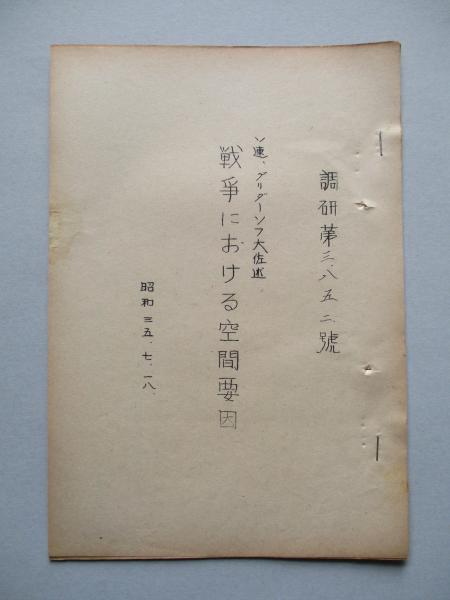 調研第三、八五二、號
ソ連、グリゴーソフ大佐述
戦爭における空間要因
昭和三五、七、一八、